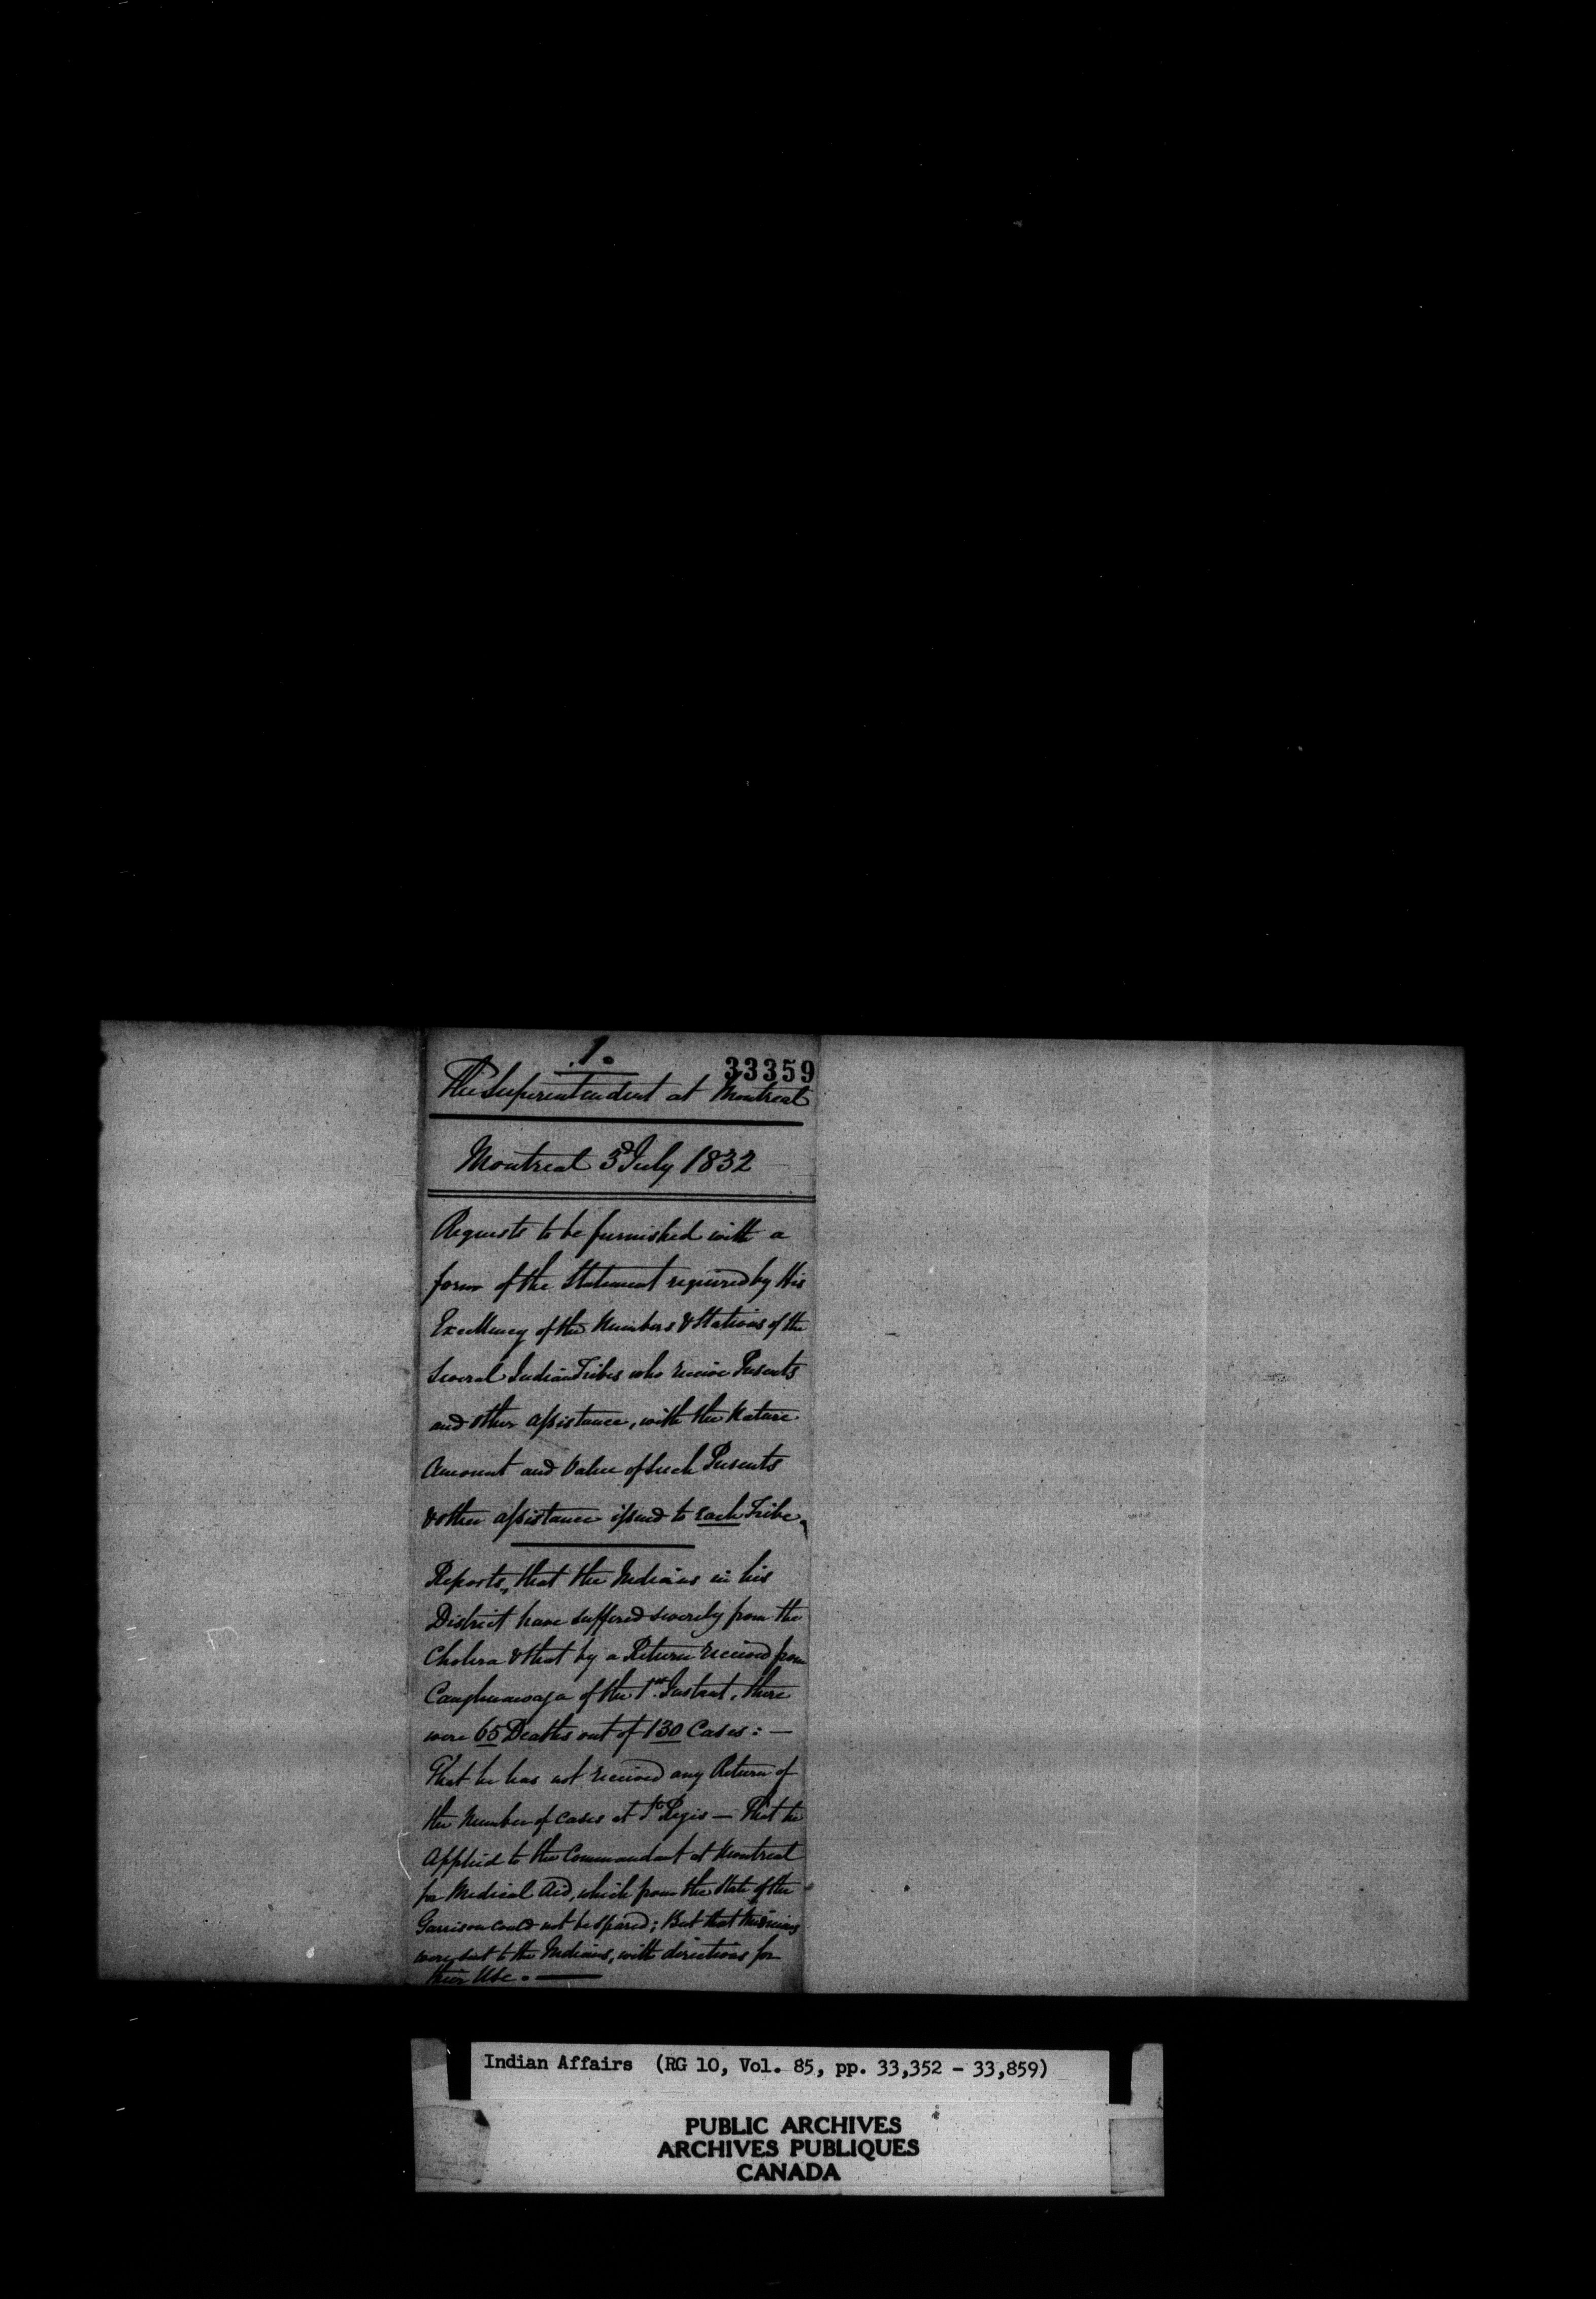 .1.
33359
The Superintendent at Montreal
Montreal 3d July 1832
Requests to be furnished with a
form of the Statement required by His
Excellency of the Numbers & Stations of the
Several Indian Tribes who receive Presents
and other assistance, with the Nature
Amount and Value of Such Presents
& other assistance issued to each Tribe.
Reports, that the Indians in his
District have suffered severely from the
Cholera & that by a Return received from
Caughnawaga of the 1st Instant, there
were 65 Deaths out of 130 Cases: —
That he has not received any Return of
the Number of cases at St Regis — That he
Applied to the Commandant at Montreal
for Medical Aid, which from the State of the
Garrison could not be spared; But that Medicines
were sent to the Indians, with directions for
their Use. —
Indian Affairs (RG 10, Vol. 85, pp. 33,352 - 33,859)
PUBLIC ARCHIVES
ARCHIVES PUBLIQUES
CANADA